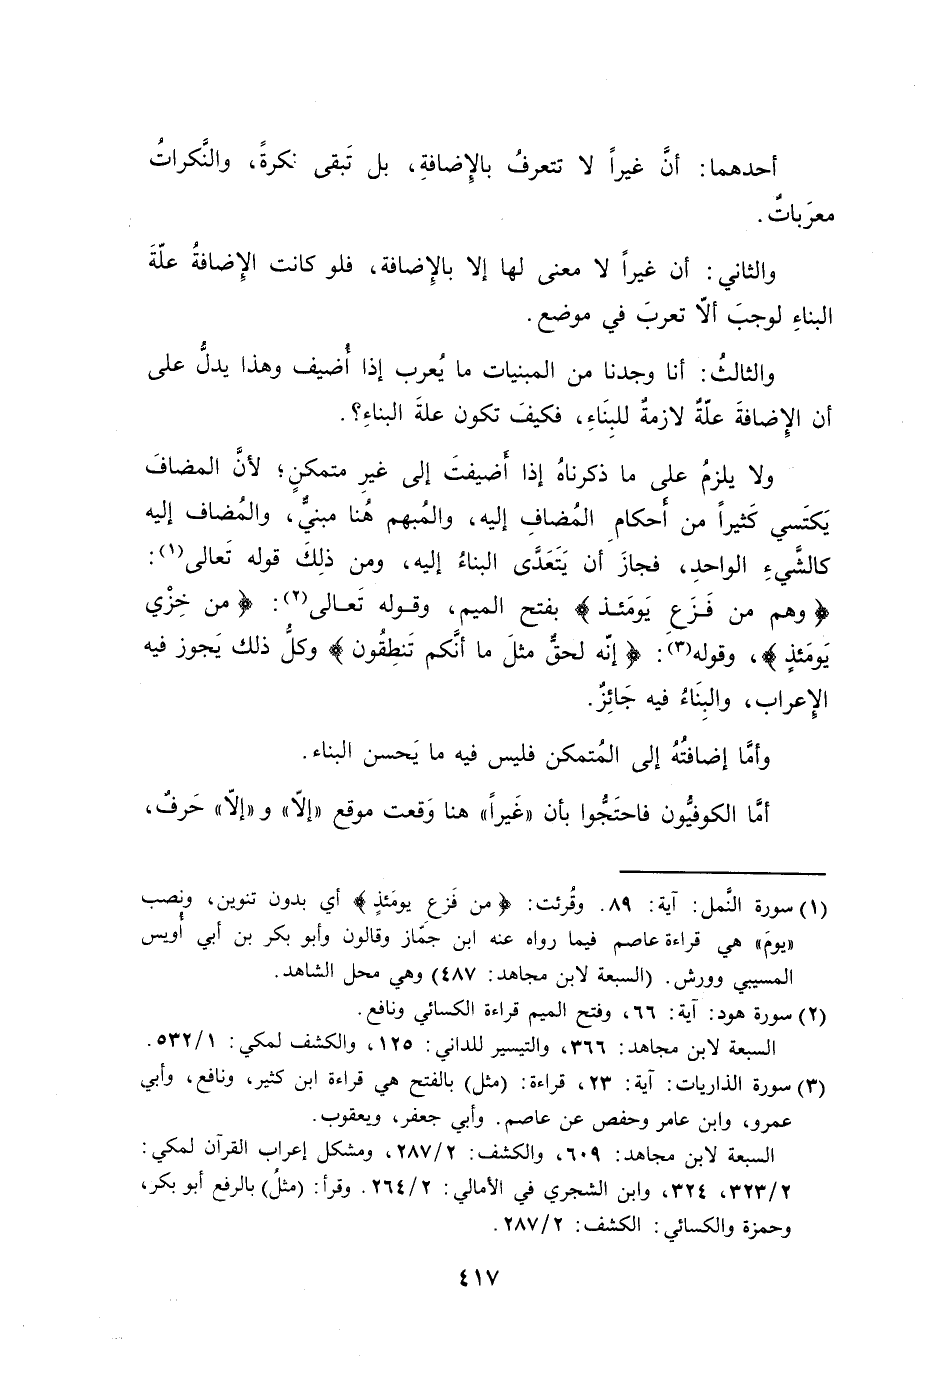 أحدهما: أنَّ غيراً لا تتعرفُ بالإِضافةِ، بل تَبقى نكرةً، والنَّكراتُ
معرَباتٌ.
والثاني: أن غيراً لا معنى لها إلا بالإِضافة، فلو كانت الإِضافةُ علّةَ
البناءِ لوجبَ ألاّ تعربَ في موضع.
والثالثُ: أنا وجدنا من المبنيات ما يُعرب إذا أُضيف وهذا يدلُّ على
أن الإِضافةَ علّةٌ لازمةٌ للبِنَاءِ، فكيفَ تكون علةَ البناءِ؟.
ولا يلزمُ على ما ذكرناهُ إذا أَضيفتَ إلى غيرِ متمكنٍ؛ لأنَّ المضافَ
يَكتَسي كَثيراً من أَحكامِ المُضافِ إليه، والمُبهم هُنا مبنيٌّ، والمُضاف إليه
كالشَّيءِ الواحدِ، فجازَ أن يَتَعَدَّى البناءُ إليه، ومن ذلِكَ قوله تَعالى(١):
﴿وهم من فَـزَعِ يَومَئـذ﴾ بفتح الميم، وقـوله تَعـالى(٢): ﴿من خِزْي
يَومَئذٍ﴾، وقوله(٣): ﴿إنّه لحقٌّ مثلَ ما أنَّكم تَنطِقُون﴾ وكلُّ ذلك يَجوز فيه
الإِعراب، والبِنَاءُ فيه جَائِزٌ.
وأمَّا إضافتُهُ إلى المُتمكن فليس فيه ما يَحسن البناء.
أمَّا الكوفيُّون فاحتَجُّوا بأن «غَيراً» هنا وَقعت موقع «إلّا» و«إلّا» حَرفٌ،
(١) سورة النَّمل: آية: ٨٩. وقُرئت: ﴿من فَزعِ يومَئذٍ﴾ أي بدون تنوين، ونصب
«يومَ» هي قراءة عاصم فيما رواه عنه ابن جمّاز وقالون وأبو بكر بن أبي أُويس
المسيبي وورش. (السبعة لابن مجاهد: ٤٨٧) وهي محل الشاهد.
(٢) سورة هود: آية: ٦٦، وفتح الميم قراءة الكسائي ونافع.
السبعة لابن مجاهد: ٣٦٦، والتيسير للداني: ١٢٥، والكشف لمكي: ٥٣٢/١.
(٣) سورة الذاريات: آية: ٢٣، قراءة: (مثل) بالفتح هي قراءة ابن كثير، ونافع، وأبي
عمرو، وابن عامر وحفص عن عاصم. وأبي جعفر، ويعقوب.
السبعة لابن مجاهد: ٦٠٩، والكشف: ٢٨٧/٢، ومشكل إعراب القرآن لمكي:
٣٢٣/٢، ٣٢٤، وابن الشجري في الأمالي: ٢٦٤/٢. وقرأ: (مثلُ) بالرفع أبو بكر،
وحمزة والكسائي: الكشف: ٢٨٧/٢.
٤١٧